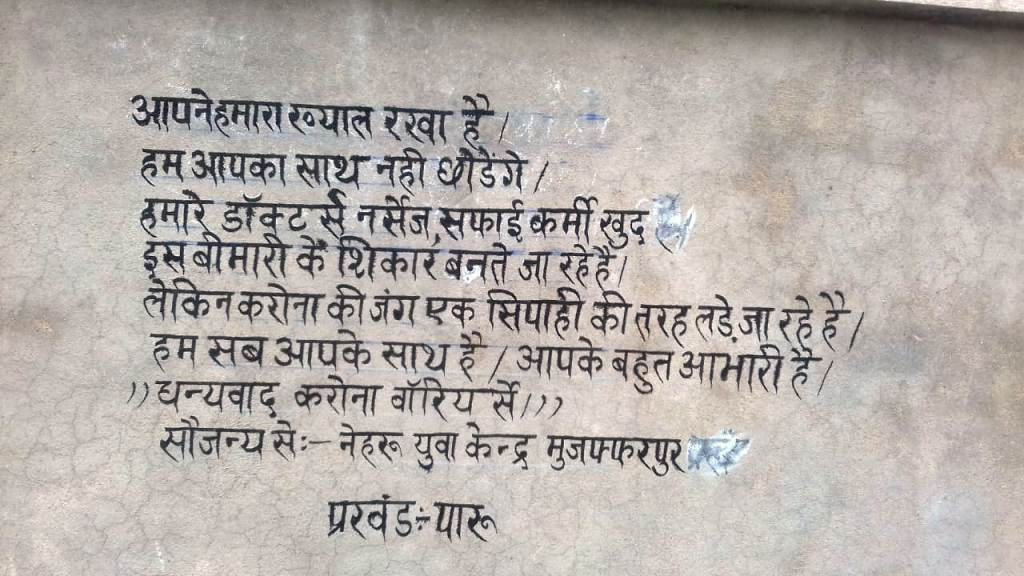 आपने हमारा ख्याल रखा है।
हम आपका साथ नही छोडेंगे।
हमारे डॉक्टर्स नर्सेज,सफाई कर्मी खुद
इस बीमारी के शिकार बनते जा रहे हैं।
लेकिन करोना की जंग एक सिपाही की तरह लडे़ जा रहे है।
हम सब आपके साथ है। आपके बहुत आभारी है।
,,धन्यवाद करोना वॉरियर्से।,,
सौजन्य से:- नेहरू युवा केन्द्र मुजफ्फरपुर
प्रखंड:-पारू